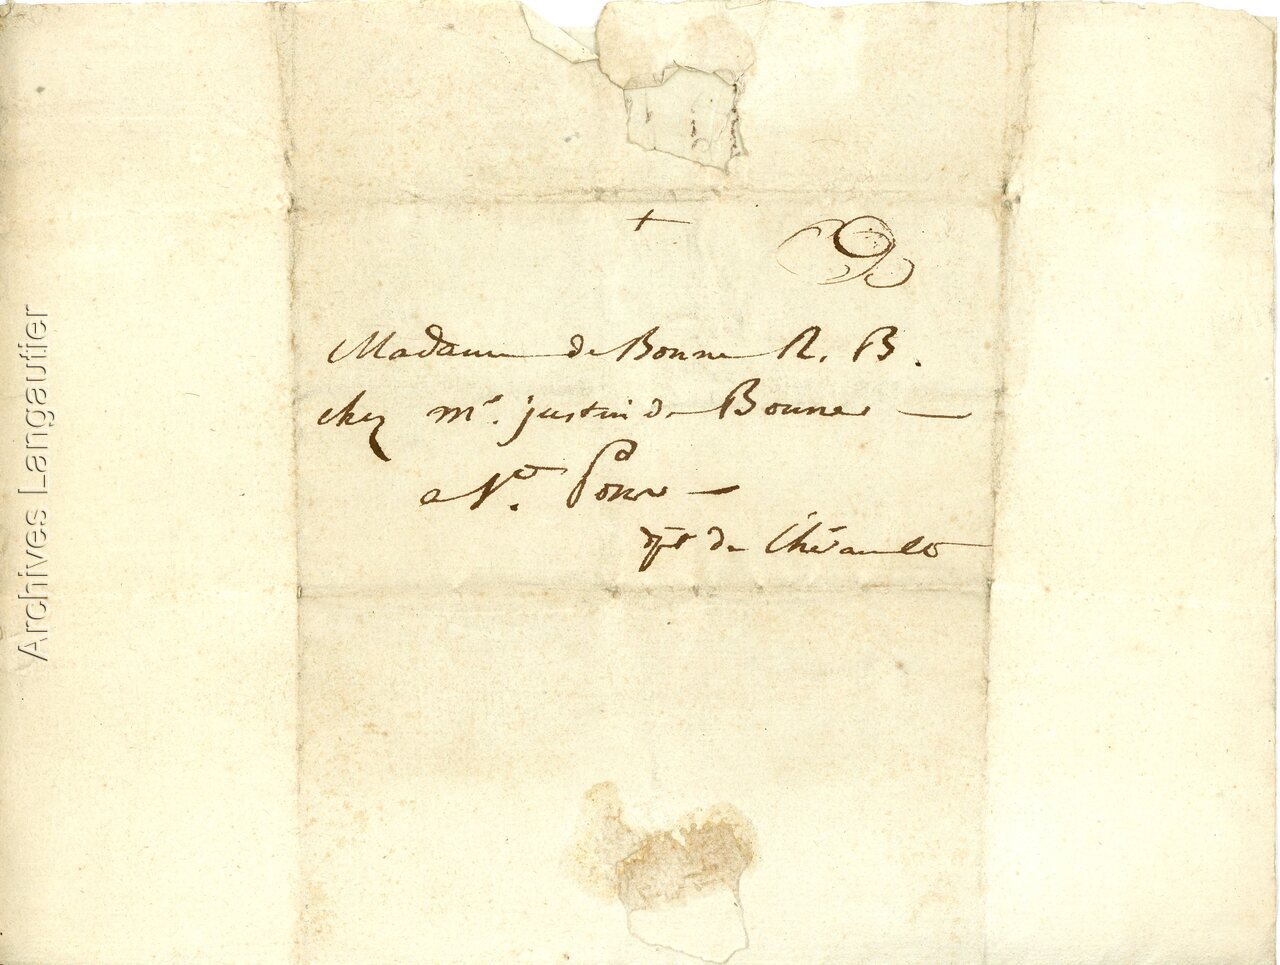 +
Madame de Bonne R. B.
chez mr. justin de Bonne
a St. Pons
dpt de l'hérault
Archives Langautier